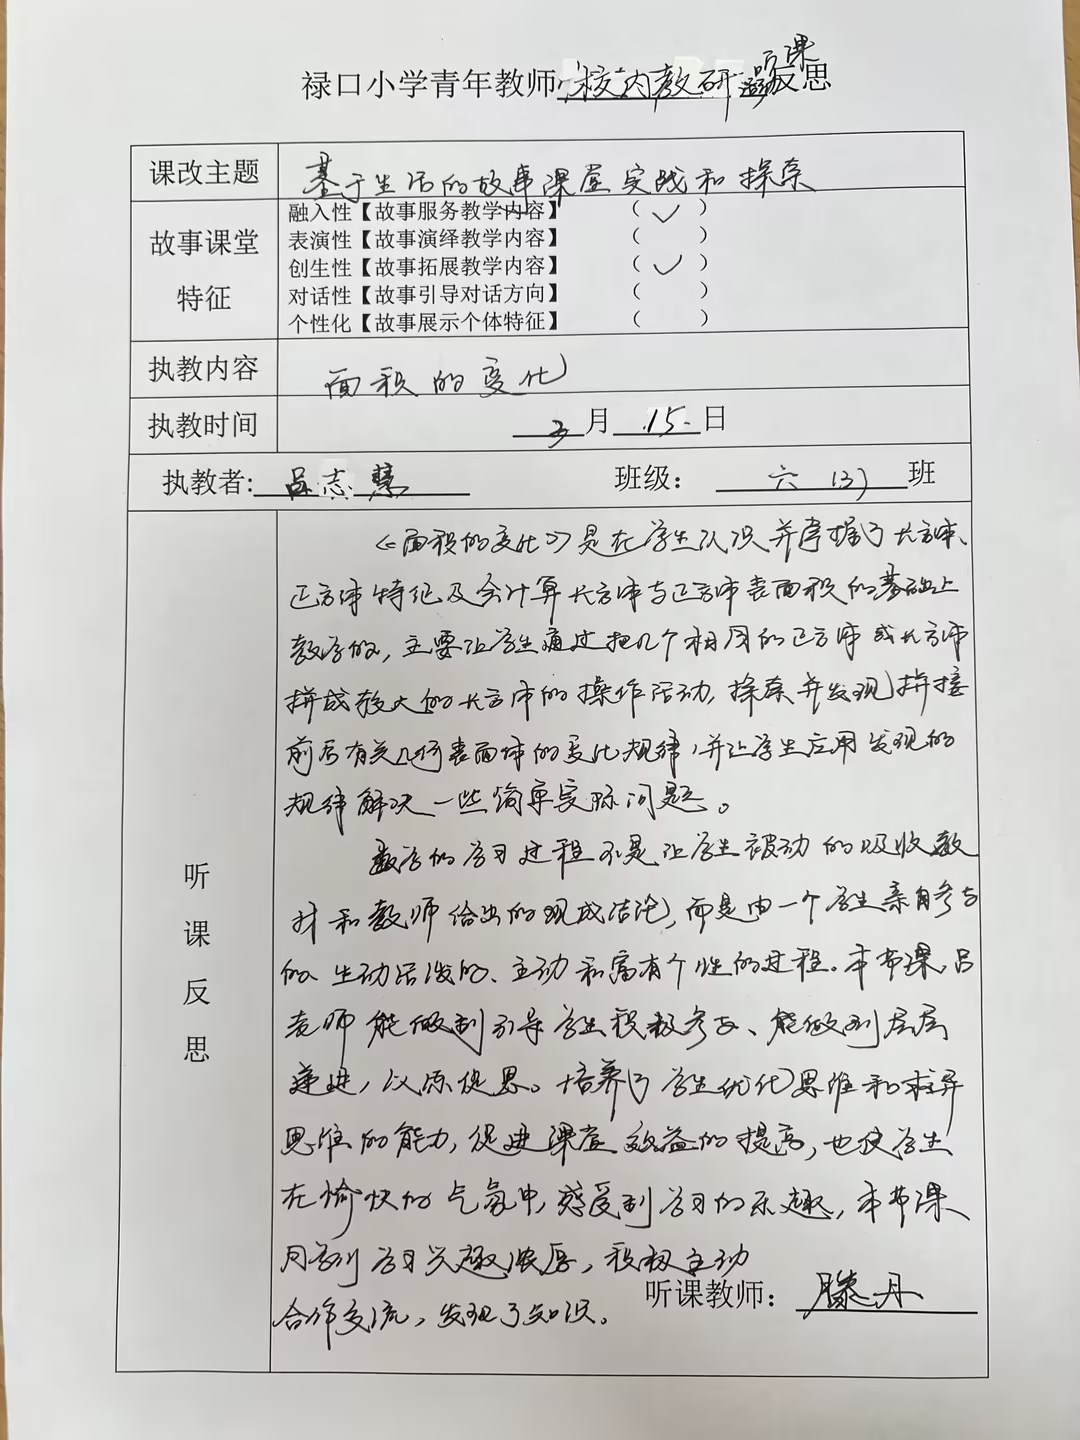 禄口小学青年教师"校内教研"听课反思
课改主题 基于生活的故事课堂实践和探索
故事课堂特征
融入性【故事服务教学内容】 （ ✓ ）
表演性【故事演绎教学内容】 （ ）
创生性【故事拓展教学内容】 （ ✓ ）
对话性【故事引导对话方向】 （ ）
个性化【故事展示个体特征】 （ ）
执教内容 面积的变化
执教时间 3月15日
执教者: 吕志慧 班级： 六（3）班
听课反思
《面积的变化》是在学生认识并掌握了长方体、
正方体特征及会计算长方体与正方体表面积的基础上
教学的，主要让学生通过把几个相同的正方体或长方体
拼成较大的长方体的操作活动，探索并发现拼接
前后有关几何表面体的变化规律，并让学生应用发现的
规律解决一些简单实际问题。
数学的学习过程不是让学生被动的吸收教
材和教师给出的现成结论，而是由一个学生亲自参与
的、生动活泼的、主动和富有个性的过程。本节课，吕
老师能做到引导学生积极参与、能做到层层
递进，以原促思。培养了学生优化思维和求异
思维的能力，促进课堂效益的提高，也使学生
在愉快的气氛中，感受到学习的乐趣，本节课
同学们学习兴趣浓厚，积极主动
合作交流，发现了知识。
听课教师： 滕丹